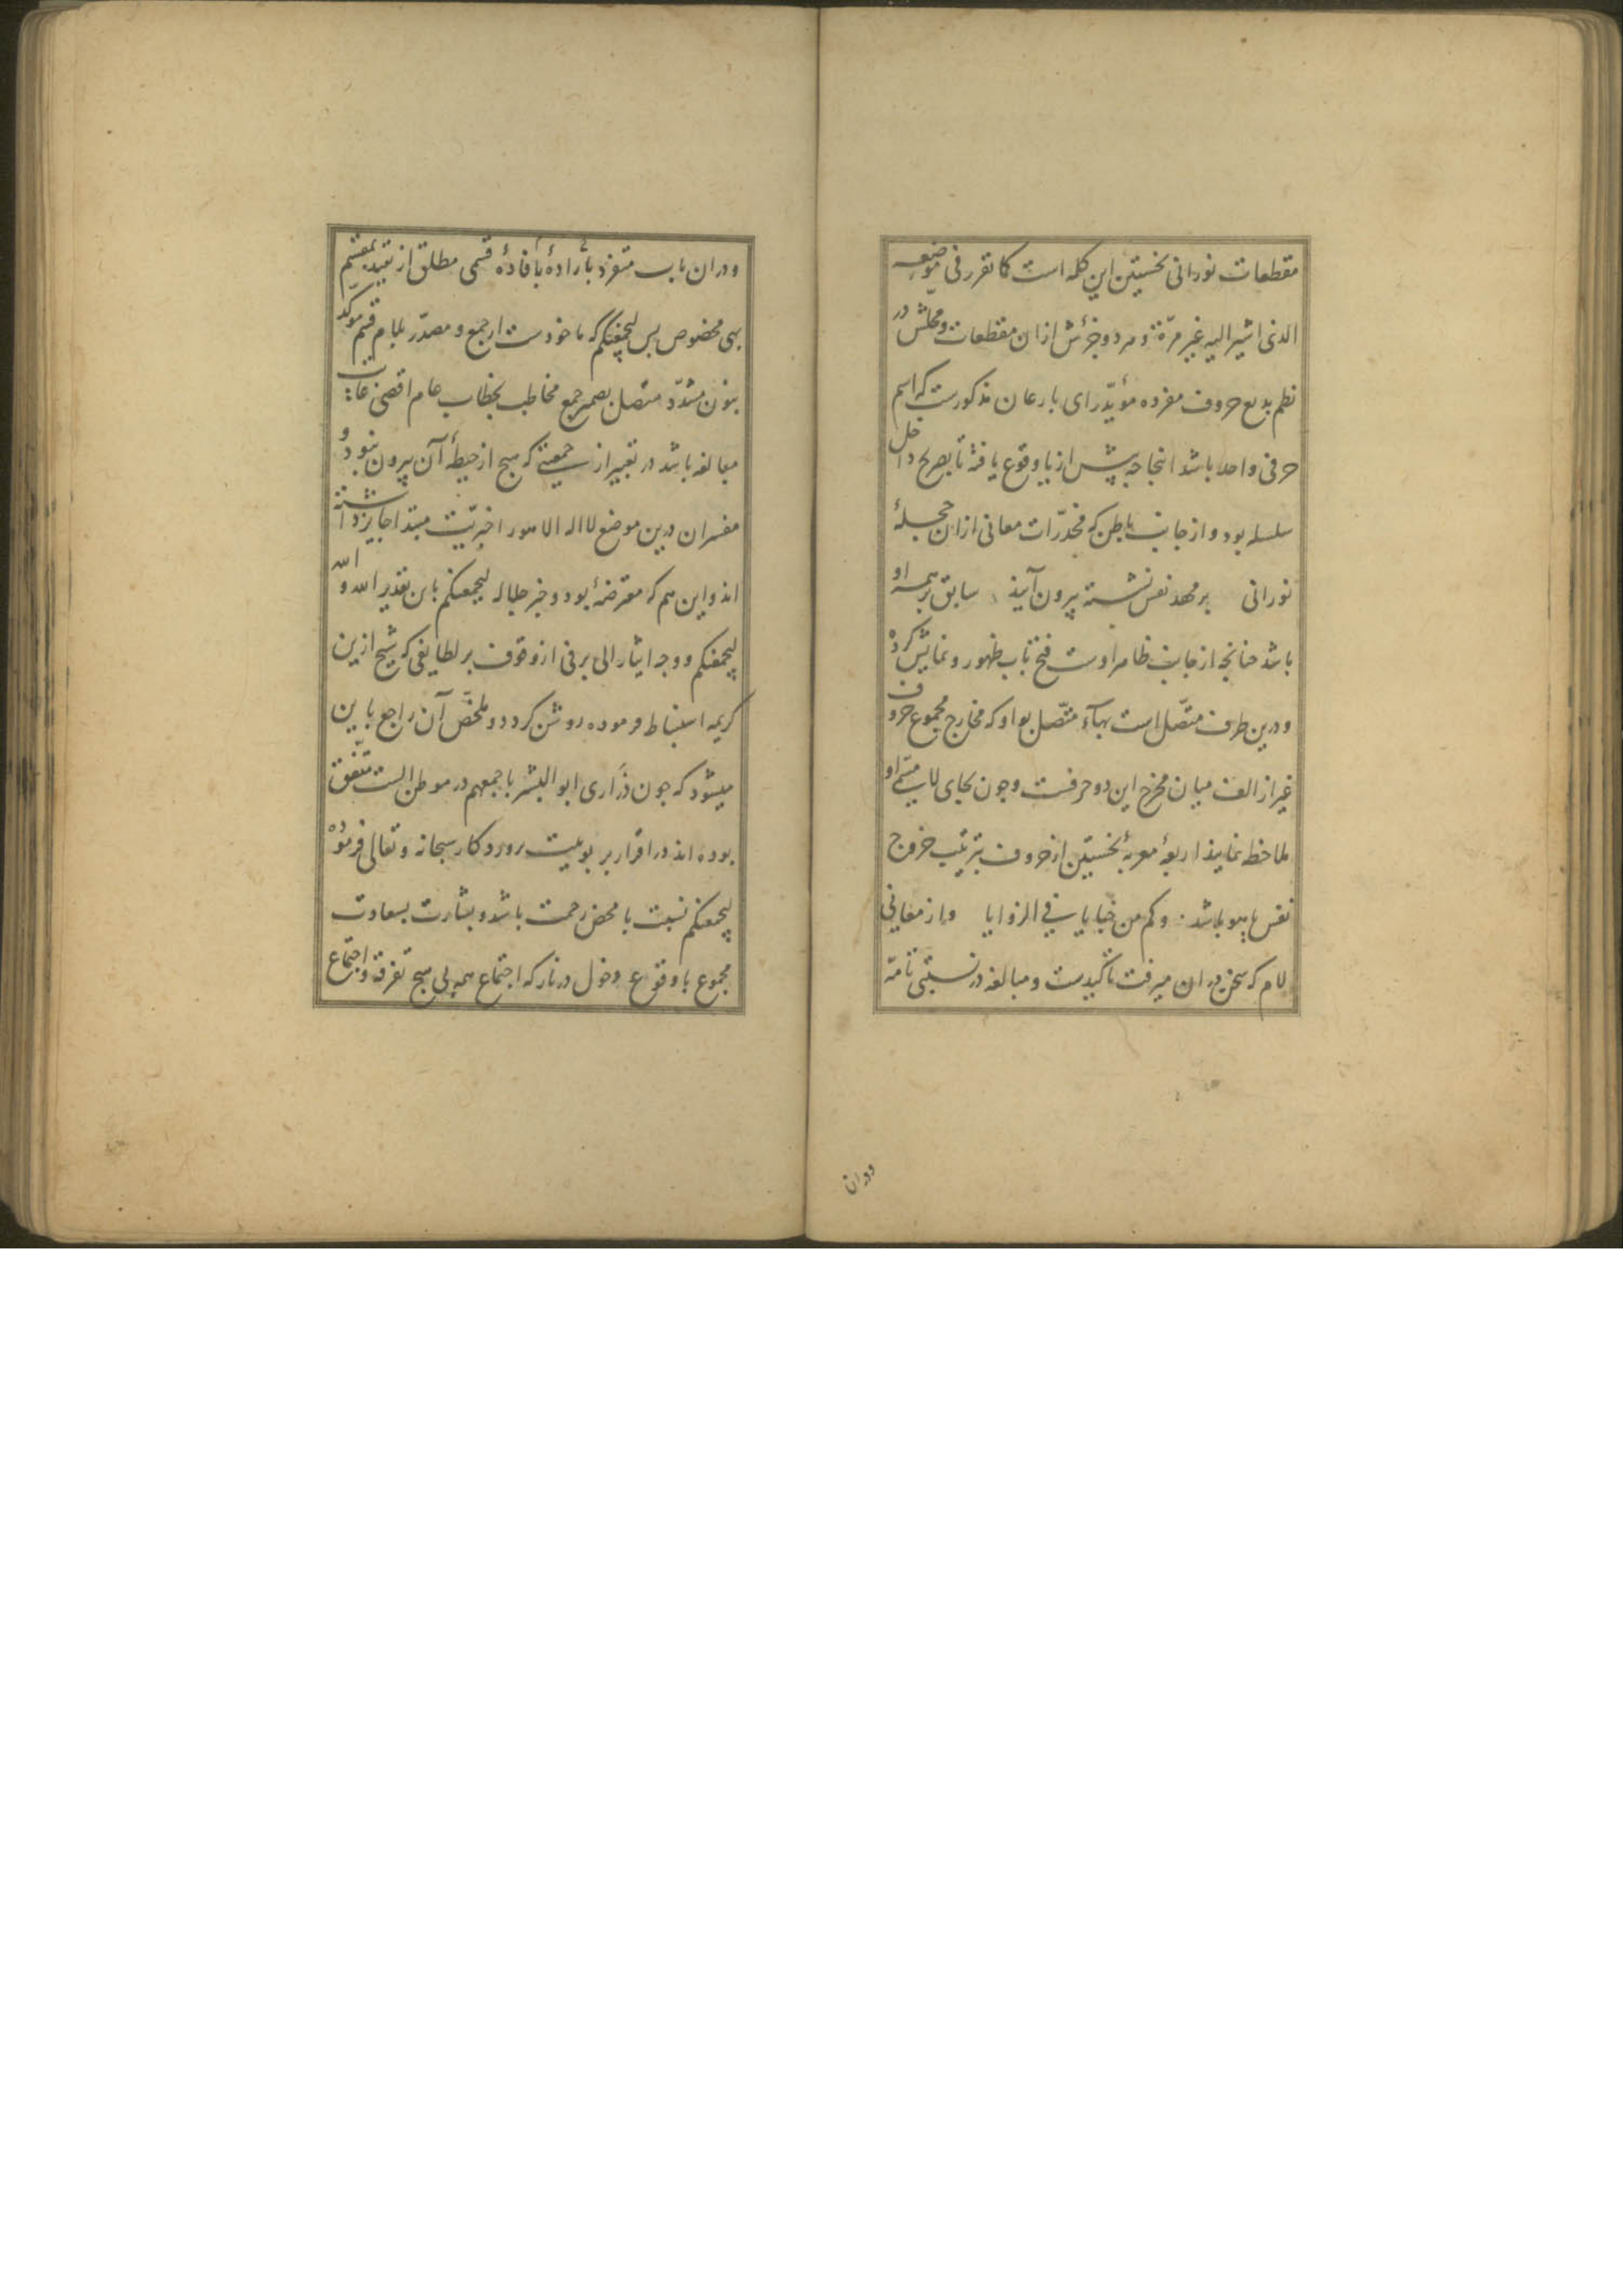 مقطعات نورانی نخستین این کله است کا تقرر فی موضعه
الذی اشیر الیه غیر مرّة و مرد و جزئش ازان مقطعات و محلش در
نظم بدیع حروف مفرده مؤیّد رای بارعان مذکورست که اسم
حرفی واحد باشد انجا جه پیش از یا وقوع یافته تا بصریح داخل
سلسله بود و از جانب باطن که مخدّرات معانی ازان حجلهٔ
نورانی بر مهد نفس نشسته بیرون آیند سابق بر همه او
باشد جنانجه از جانب ظاهر اوست فتح باب ظهور و نمایش کرده
و درین طرف متّصل است بهآء متّصل بواو که مخارج مجموع حروف
غیر از الف میان مخرج این دو حرفست وجون بجای لا مسمّی او
ملاحظه نمایند اربعهٔ معربهٔ نخستین از حروف بترتیب خروج
نفس یا یهو باشد وکم من خبایا فی الزوایا و از معانی
لام که سخن دران میرفت تاکیدست و مبالغه در نسبتی تامّه
ودران
ودران باب متفرد باراده بافادهٔ قسمی مطلق از تقید بمقسم
بهی مخصوص بس لیجمعنکم که ماخودست ارجمع و مصدّر بلام قسم موکد
بنون مشدّد متصل بصمیر جمع مخاطب بخطاب عام اقصی غایات
مبالغه باشد در تعبیر از جمعیتی که هیج از حیطهٔ آن بیرون نبود و
مفسران درین موضع لا اله الا هو را خبریّت مبتدا جایز داشته
اند و این هم که معترضهٔ بود و خبر جلاله لیجمعنکم باین تقدیر الله والله
لیجمعنکم و وجه ایثار الی بر فی از وقوف بر لطایفی که شیخ ازین
کریمه استنباط فرموده روشن کردد و ملخّص آن راجع باین
میشود که جون ذرّاری ابو البشر باجمعهم در موطن الست متّفق
بوده اند در اقرار بربوبیت بروردکار سبحانه و تعالی فرموده
لیجمعنکم نسبت با محض رحمت باشد و بشارت بسعادت
مجموع با وقوع دخول در نار که اجتماع همه بی هیج تفرقه و اجتماع